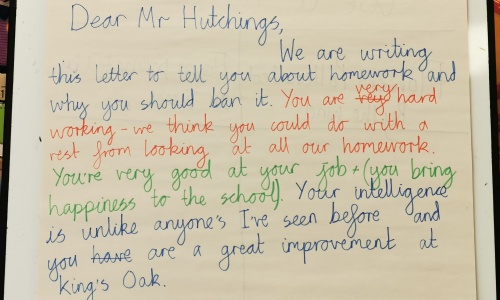 Dear Mr Hutchings,
We are writing
this letter to tell you about homework and
very
why you should ban it. You are very hard
working - we think you could do with a
rest from looking at all our homework.
You're very good at your job + (you bring
happiness to the school). Your intelligence
is unlike anyone's I've seen before and
you have are a great improvement at
King's Oak.